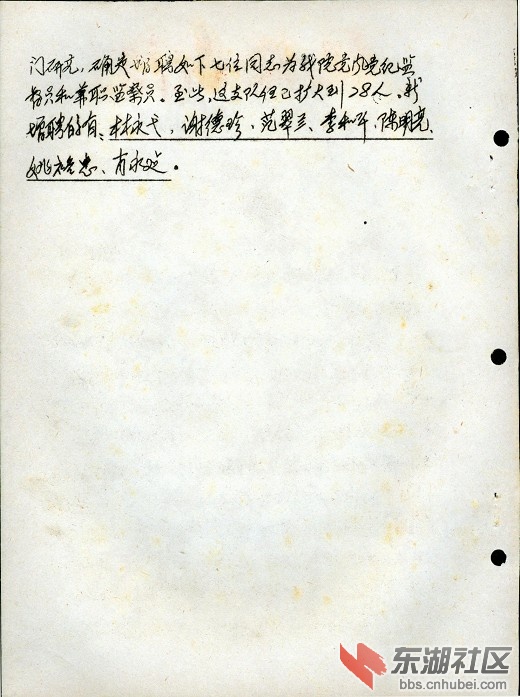 门研究，确定增聘如下七位同志为我院党风党纪监
督员和兼职监察员。至此，这支队伍已扩大到28人。新
增聘的有：林永弋，谢德珍、范翠兰、李和平、陈明亮、
姚忠、肖永定。
东湖社区
bbs.cnhubei.com